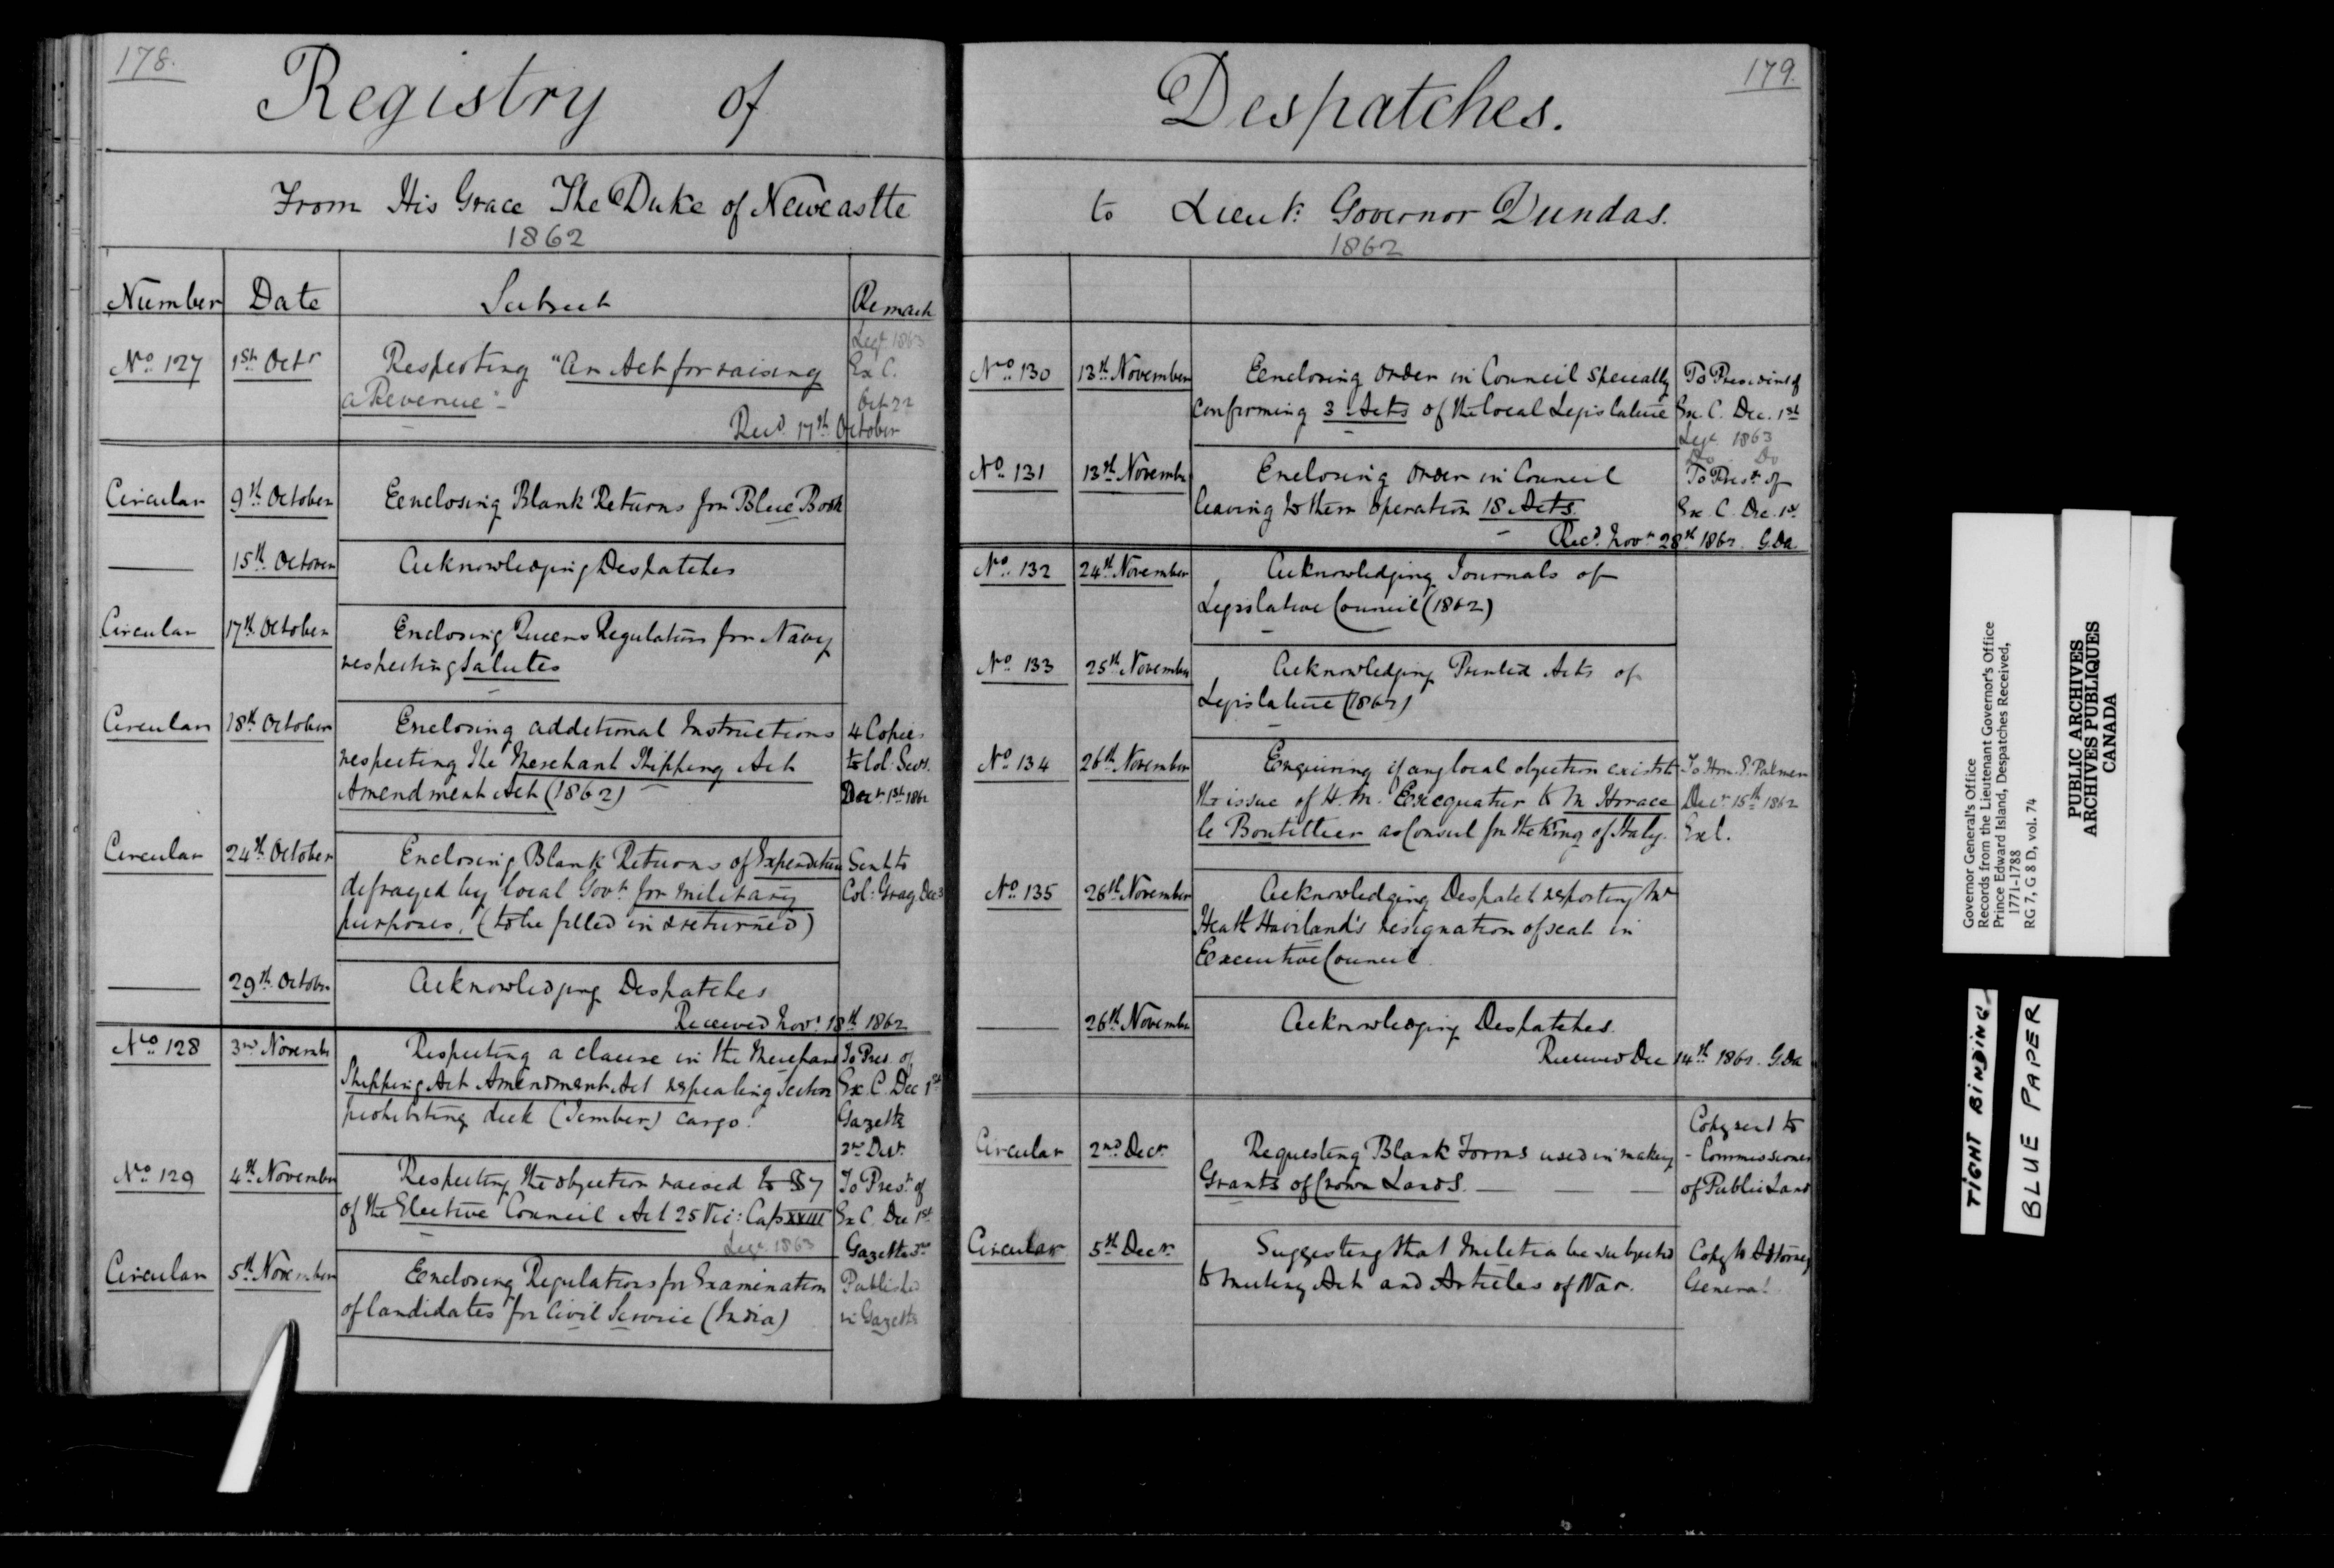 178.
Registry of
From His Grace The Duke of Newcastle
1862
Number Date Subject Remark
Legr. 1863
No. 127 1st Octr Respecting "An Act for raising Ex C.
a Revenue" Oct 22
Recd. 17th October
Circular 9th October Eenclosing Blank Returns for Blue Book
15th October Acknowledging Despatches
Circular 17th October Enclosing Queens Regulations for Navy
respecting Salutes
Circular 18th October Enclosing additional Instructions 4 Copies
respecting The Merchant Shipping Act to Col. Secy.
Amendment Act (1862) Decr 1st 1862
Circular 24th October Enclosing Blank Returns of Expenditure Sent to
defrayed by local Govt. for military Col: Gray Dec 3
purposes. (to be filled in & returned)
29th October Acknowledging Despatches
Received Novr 18th 1862
No. 128 3rd Novembr Respecting a clause in the Merchant To Pres. of
Shipping Act Amendment Act repealing Section Ex. C. Dec 1st
prohibiting deck (Timber) cargo. Gazette
2nd Decr.
No. 129 4th November Respecting the objection raised to § 7 To Prest. of
of the Elective Council Act 25 Vic: Cap XXIII Ex C. Dec 1st
Legr. 1863 Gazette 3rd
Circular 5th November Eenclosing Regulations for Examination Published
of Candidates for Civil Service (India) in Gazette
179.
Despatches.
to Lieut. Governor Dundas.
1862
No. 130 13th November Eenclosing Order in Council Specially To President of
confirming 3 Acts of the local Legislature Ex. C. Dec. 1st
Legr. 1863
Do Do
No. 131 13th Novembr Enclosing Order in Council To Prest. of
leaving to their operation 18 Acts. Ex. C. Dec. 1st
Recd. Novr 28th 1862. G.Da.
No. 132 24th November Acknowledging Journals of
Legislative Council (1862)
No. 133 25th November Acknowledging Printed Acts of
Legislature (1862)
No. 134 26th November Enquiring if any local objection exists to To Hon. E. Palmer
the issue of H. M. Exequatur to Mr Horace Decr 15th 1862
le Boutillier as Consul for the King of Italy. Ex C.
No. 135 26th November Acknowledging Despatch reporting Mr
Heath Haviland's resignation of seat in
Executive Council.
26th Novembr Acknowledging Despatches.
Received Dec 14th 1862. G.Da
Copy sent to
Circular 2nd Decr. Requesting Blank Forms used in making - Commissioner
Grants of Crown Lands. of Public Land
Circular 5th Decr. Suggesting that Militia be subjected Copy to Attorney
to Mutiny Act and Articles of War. General.
Governor General's Office
Records from the Lieutenant Governor's Office
Prince Edward Island, Despatches Received,
1771-1788
RG 7, G 8 D, vol. 74
PUBLIC ARCHIVES
ARCHIVES PUBLIQUES
CANADA
TIGHT BINDING
BLUE PAPER